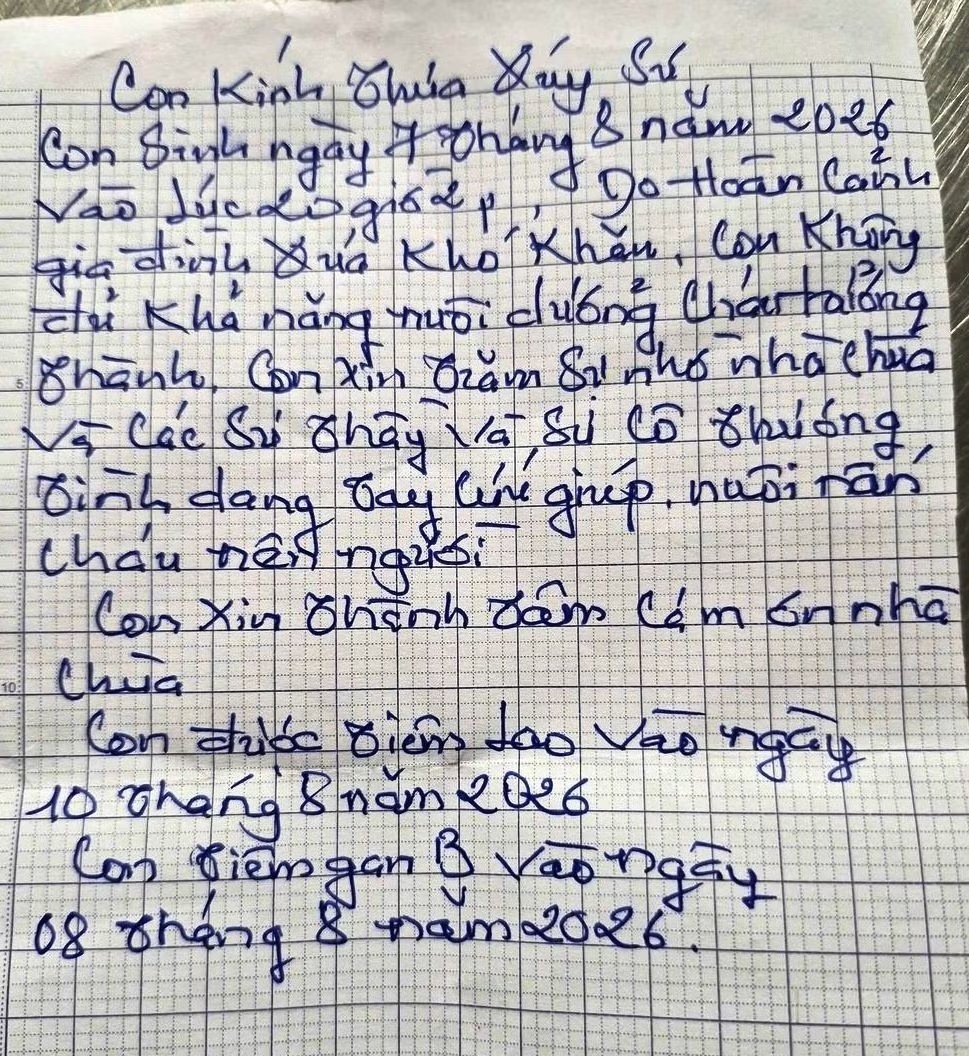 Con Kính Thưa Quý Sư
Con Sinh ngày 7 tháng 8 năm 2026
Vào lúc giờ 2p, Do Hoàn Cảnh
gia đình Quá Khó Khăn, Con Không
đủ Khả năng nuôi dưỡng Cháu trưởng
thành, Con xin trăm Sự nhờ nhà chùa
Và Các Sư thầy Và Sư Cô thương
tình dang tay Cứu giúp, nuôi rắn
Cháu nên người
Con Xin thành tâm Cám ơn nhà
Chùa
Con được tiêm lao Vào ngày
10 tháng 8 năm 2026
Con tiêm gan B Vào ngày
08 tháng 8 năm 2026.
5
10